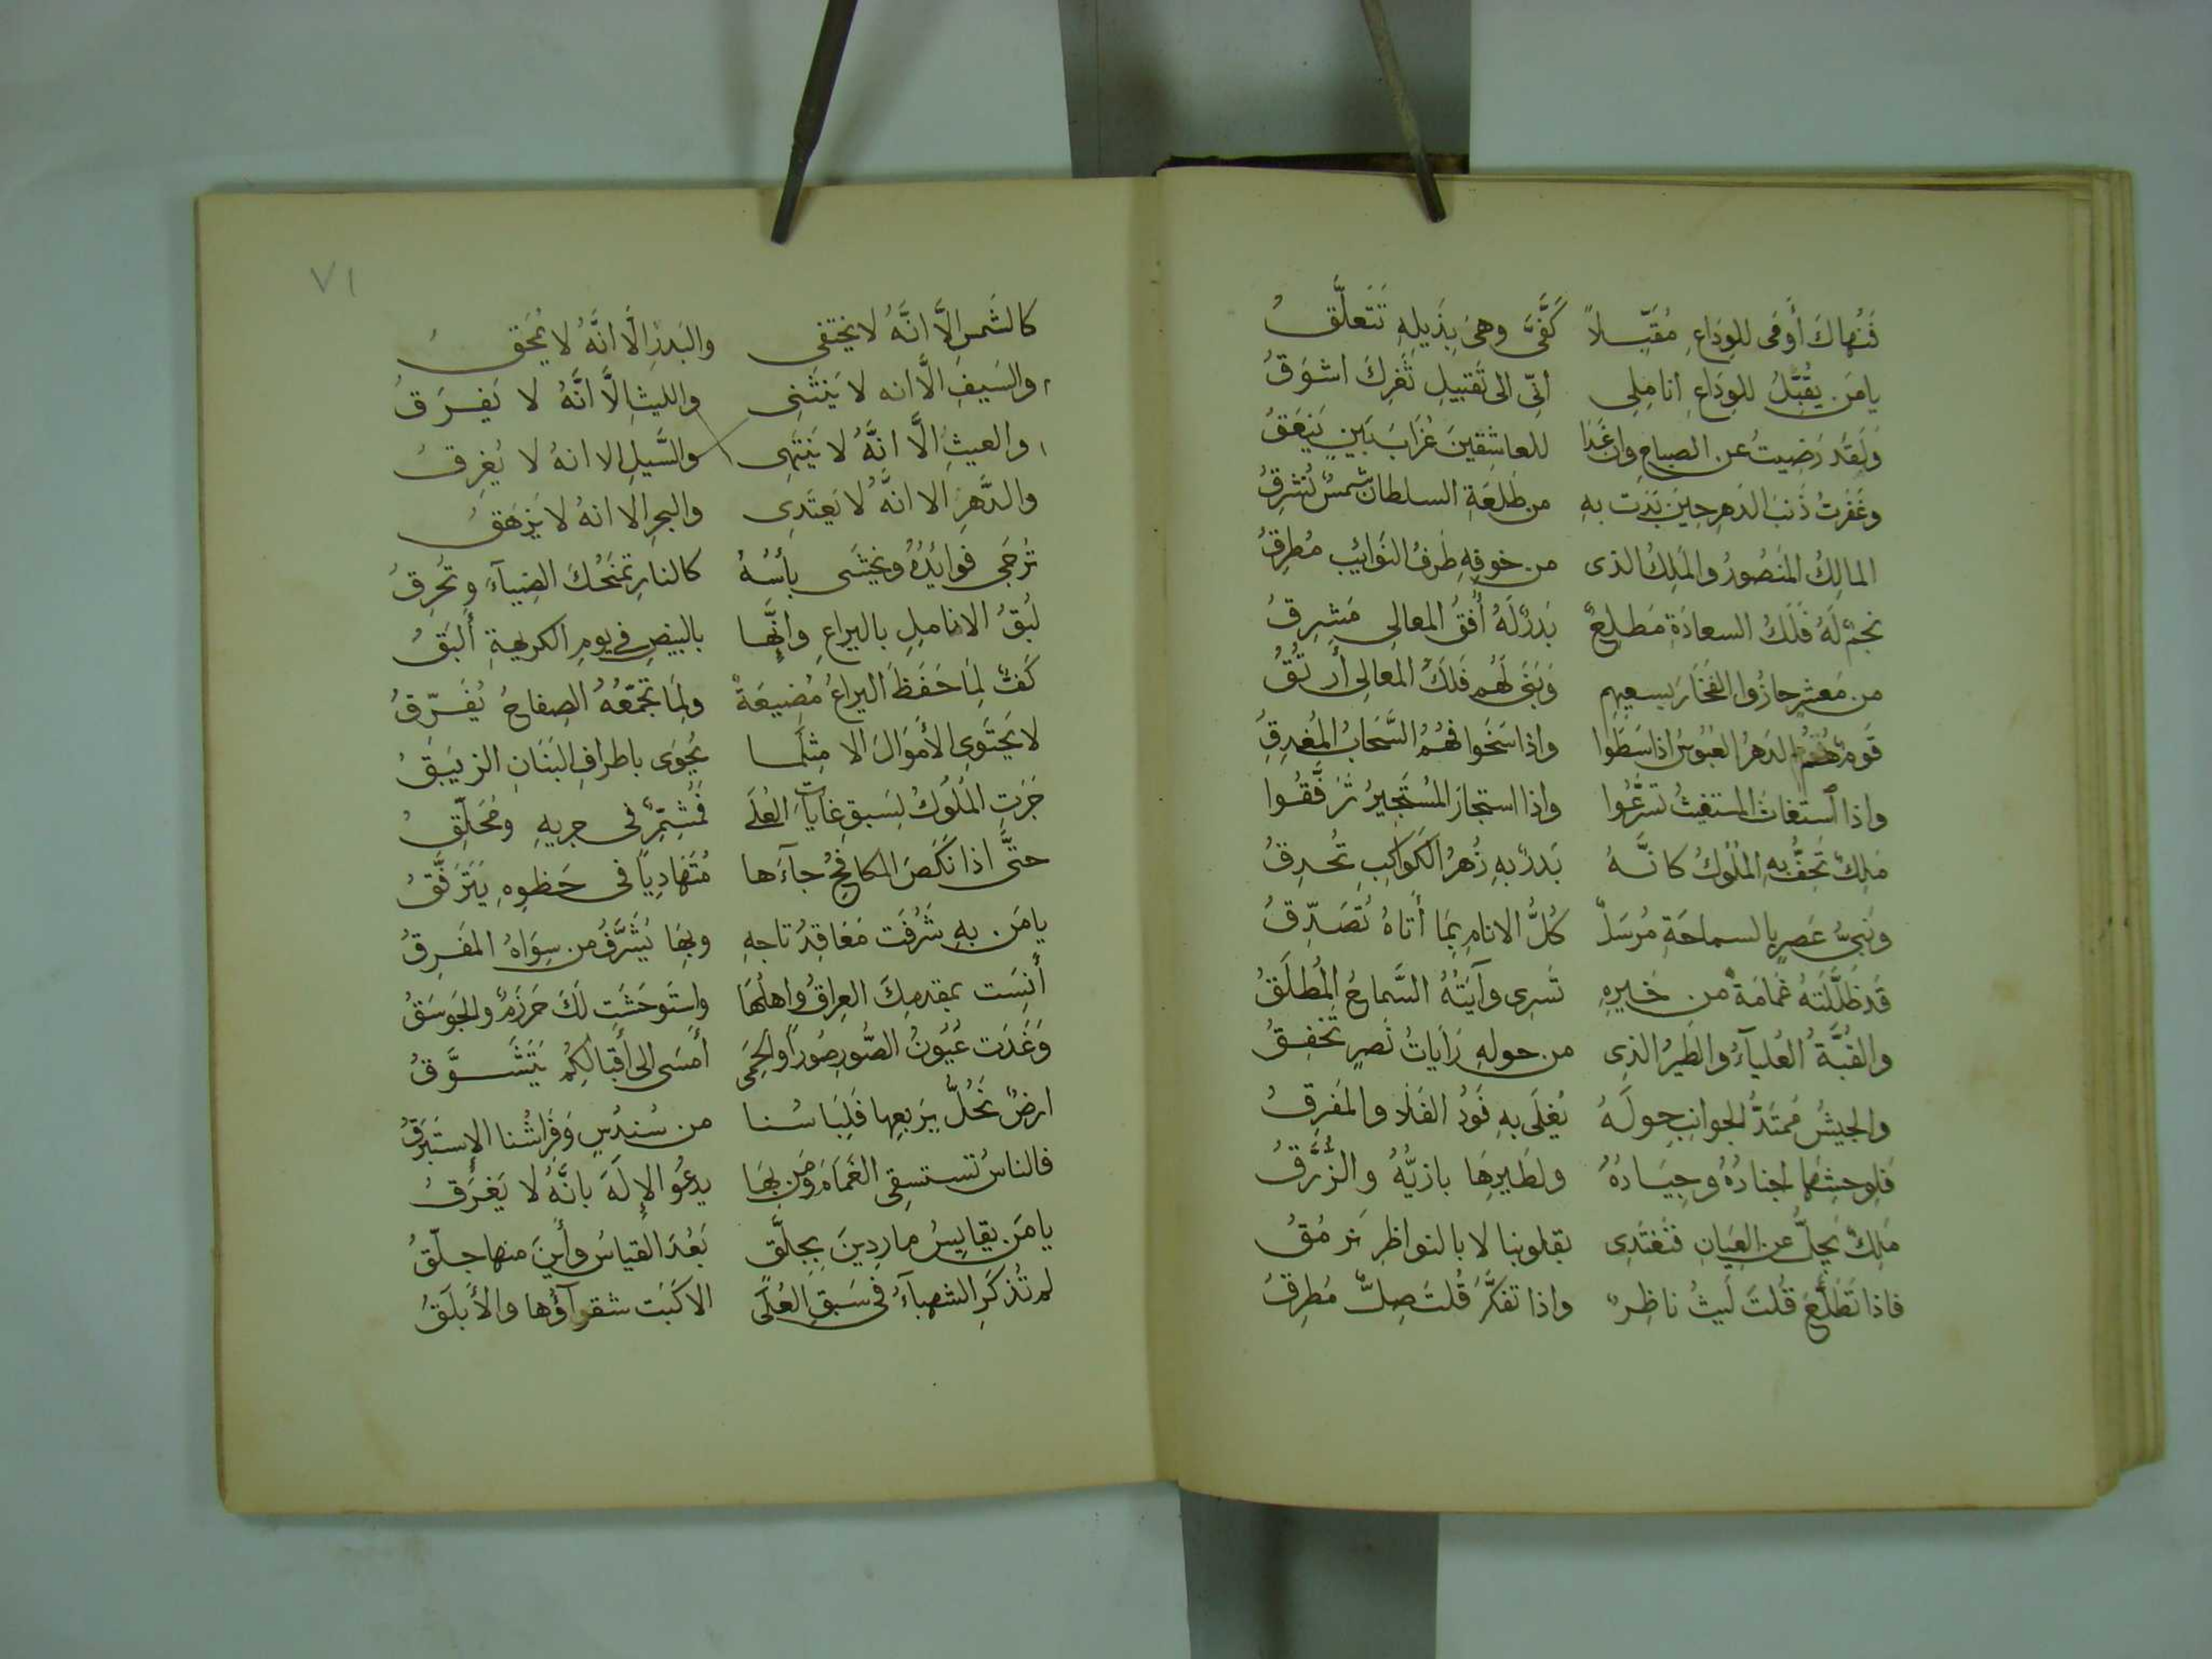 فَنُهاكَ أَومَى للوِدَاعِ مُقَبِّلاً كَفَّىَّ وهىَ بِذَيلِهِ تَتَعلَّقُ
يا مَن يُقَبِّلُ للوِدَاعِ انامِلِى انّى الى تَقبيلِ ثَغرِكَ اشوَقُ
وَلَقَد رَضيتُ عن الصباحِ وان غَدَا للعاشِقينَ غُرَابَ بَينٍ يَنعَقُ
وغَفَرتُ ذَنبَ الدَهرِ حِينَ بَدَت بِهِ من طَلعَةِ السلطان شمسٌ تُشرِقُ
المالِكُ المَنصُورُ والمَلِكُ الذى من خوفِهِ طَرفُ النَوَائِبِ مُطرِقُ
نجمٌ لَهُ فَلَكُ السعادَةِ مَطلِعٌ بَدرٌ لَهُ أُفقُ المعالِى مَشرِقُ
من مَعشرٍ حازُوا الفَخَارَ بسعيِهِم وَبَنَى لَهُم فَلَكُ المعالِى أَرتُقُ
قَومٌ هُمُ الدَهرُ العَبُوسُ اذا سَطَوا واذا سَخَوا فهُمُ السَّحَابُ المُغدِقِ
واذا استغاثَ المستغيثُ تسَرَّعُوا واذا استجارَ المُستَجِيرُ تَرَفَّقُوا
مَلِكٌ تَحُفُّ بِهِ المُلُوكُ كانَّهُ بَدرٌ بهِ زُهرُ الكَوَاكِبِ تُحدِقُ
ونَبىُّ عَصرٍ بالسماحَةِ مُرسَلٌ كُلُّ الانامِ بِمَا أَتاهُ تُصَدِّقُ
قَد ظَلَّلَتهُ غَمَامَةٌ من خَيرِهِ تَسرِى وآيَتُهُ السَّماحُ المُطلَقُ
والقُبَّةُ العُلياءُ والطَيرُ الذِى من حولِهِ رَايَاتُ نَصرٍ تَخفِقُ
والجيشُ مُمتَدُّ الجوانِبِ حولَهُ يُغلَى بِهِ فَودُ الفَلَا والمَفرِقُ
فَلِوحشِهَا اجنادُهُ وجِيَادُهُ ولطَيرِهَا بازيُّهُ والزُرَّقُ
مَلِكٌ يَجِلُّ عن العِيَانِ فتَغتَدِى بقلوبِنا لا بالنواظِرِ نرمُقُ
فاذا تَطَلَّعَ قُلتَ لَيثٌ ناظِرٌ واذا تفكَّرَ قُلتَ صِلٌّ مُطرِقُ
٧١
كالشَمسِ إلَّا انَّهُ لا يختفى والبَدرِ إلَّا انَّهُ لا يُمحَقُ
والسَيفِ الَّا انه لا يَنثَنِى والليثِ الَّا انَّهُ لا يَفرَقُ
والغيثِ الَّا انَّهُ لا يَنتَهِى والسَّيلِ الا انهُ لا يُغرِقُ
والدَّهرِ الا انَّهُ لا يَعتَدِى والبحرِ الا انهُ لا يَزهَقُ
تُرجَى فوائِدُهُ ويُخشَى بأسُهُ كالنارِ تمنَحُكَ الضِيآءَ وتُحرِقُ
لَبِقُ الاناملِ باليراعِ وانَّها بالبيضِ فى يومِ الكريهةِ أَلبَقُ
كَفٌّ لِمَا حَفَظَ اليراعُ مُضِيعَةٌ ولِمَا تجَمّعُهُ الصِفاحُ يُفَرِّقُ
لا يَحتَوِى الأَموَالَ الا مِثلَما يُحوَى باطرافِ البَنَانِ الزِيبَقُ
جَرَتِ المُلُوكُ لِسَبقِ غاياتِ العُلَى فمُشَمِّرٌ فى جريِهِ ومُحَلِّقُ
حتَّى اذا نَكَصَ المكافِحُ جآءَها مُتَهَادِياً فى خَطوِهِ يَتَرَفَّقُ
يا مَن بهِ شَرُفَت مَعَاقِدُ تاجِهِ وبِهَا يُشَرَّفُ من سِوَاهُ المَفرِقُ
أَنِسَت بمقدمِكَ العِراقُ واهلُهَا واستَوحَشَت لَكَ حَرزَمٌ والجَوسَقُ
وَغَدَت عُيُونُ الصُّورِ صُوراً والحِمَى أمسَى الى أَقبالِكُم يَتَشَوَّقُ
ارضٌ نَحُلُّ بِرَبعِها فَلِبَاسُنا من سُندُسٍ وَفِرَاشُنا الإستَبرَقُ
فالناسُ تستسقِى الغَمَامَ ومَن بِهَا يدعُو الإلَهَ بانَّهُ لا يَغرَقُ
يا مَن يقايِسُ مارِدِينَ بِجِلَّقٍ بَعُدَ القياسُ وأَينَ منها جلّقُ
لم تُذكَرِ الشهباءُ فى سَبقِ العُلَى الا كَبَت شقرآؤُها والأَبلَقُ